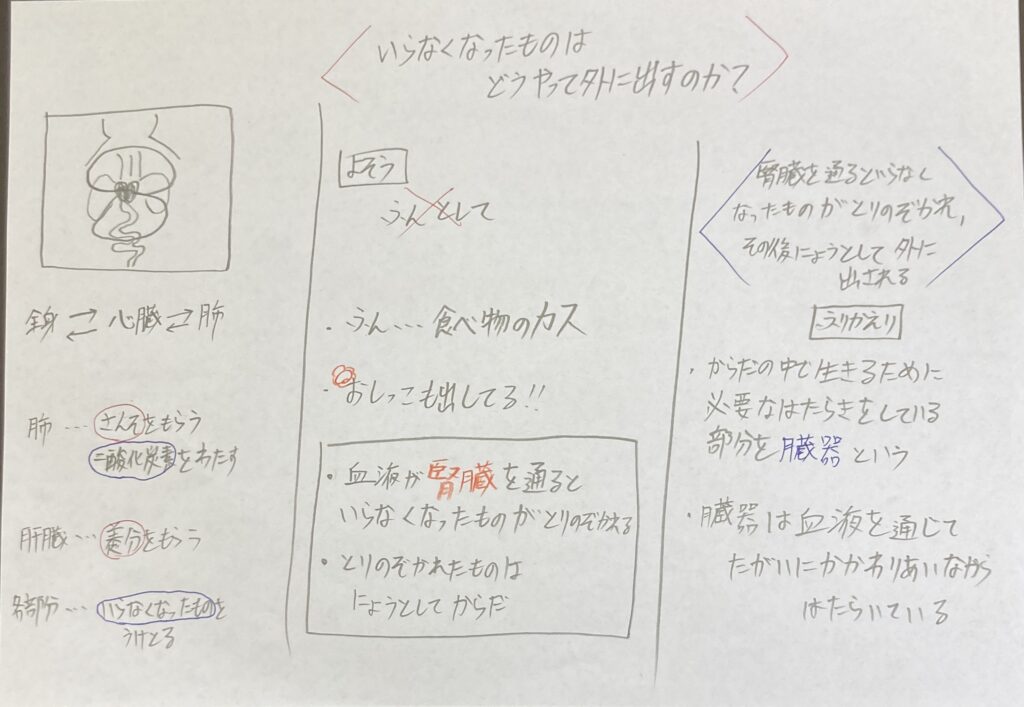 いらなくなったものは
どうやって外に出すのか?
全身 ⇄ 心臓 ⇄ 肺
肺 … さんそをもらう
二酸化炭素をわたす
肝臓 … 養分をもらう
各部分 … いらなくなったものを
うけとる
よそう
うんとして
・うん… 食べ物のカス
・おしっこも出してる!!
・血液が腎臓を通ると
いらなくなったものがとりのぞかれる
・とりのぞかれたものは
にょうとしてからだ
腎臓を通るといらなく
なったものがとりのぞかれ,
その後にょうとして外に
出される
ふりかえり
・からだの中で生きるために
必要なはたらきをしている
部分を臓器という
・臓器は血液を通じて
たがいにかかわりあいながら
はたらいている